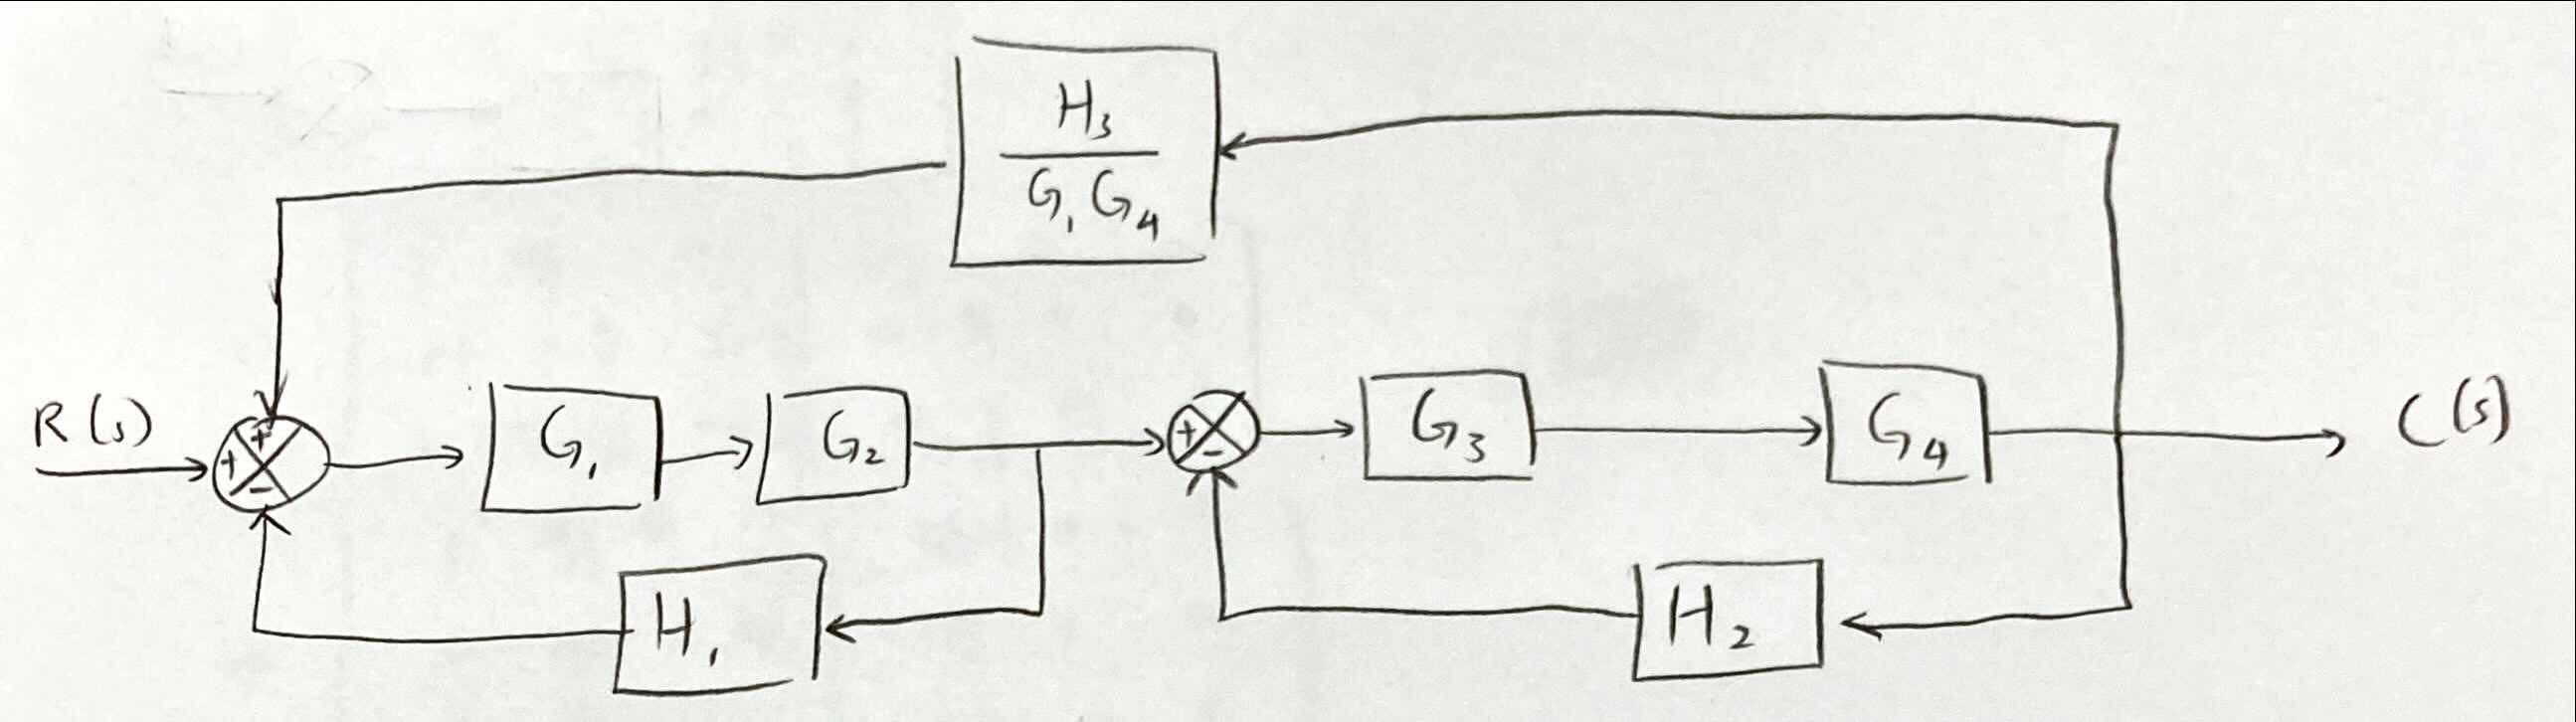 H₃
G₁ G₄
R(s)
+
+
-
G₁
G₂
+
-
G₃
G₄
C(s)
H₁
H₂